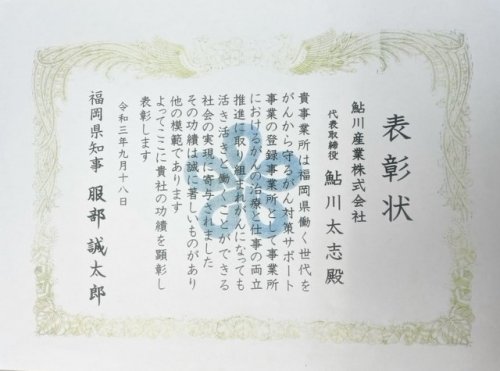 表彰状
鮎川産業株式会社
代表取締役 鮎川太志殿
貴事業所は福岡県働く世代を
がんから守るがん対策サポート
事業の登録事業所として事業所
におけるがんの治療と仕事の両立
推進に取り組まれがんになっても
活き活きと働くことができる
社会の実現に寄与されました
その功績は誠に著しいものがあり
他の模範であります
よってここに貴社の功績を顕彰し
表彰します
令和三年九月十八日
福岡県知事 服部誠太郎